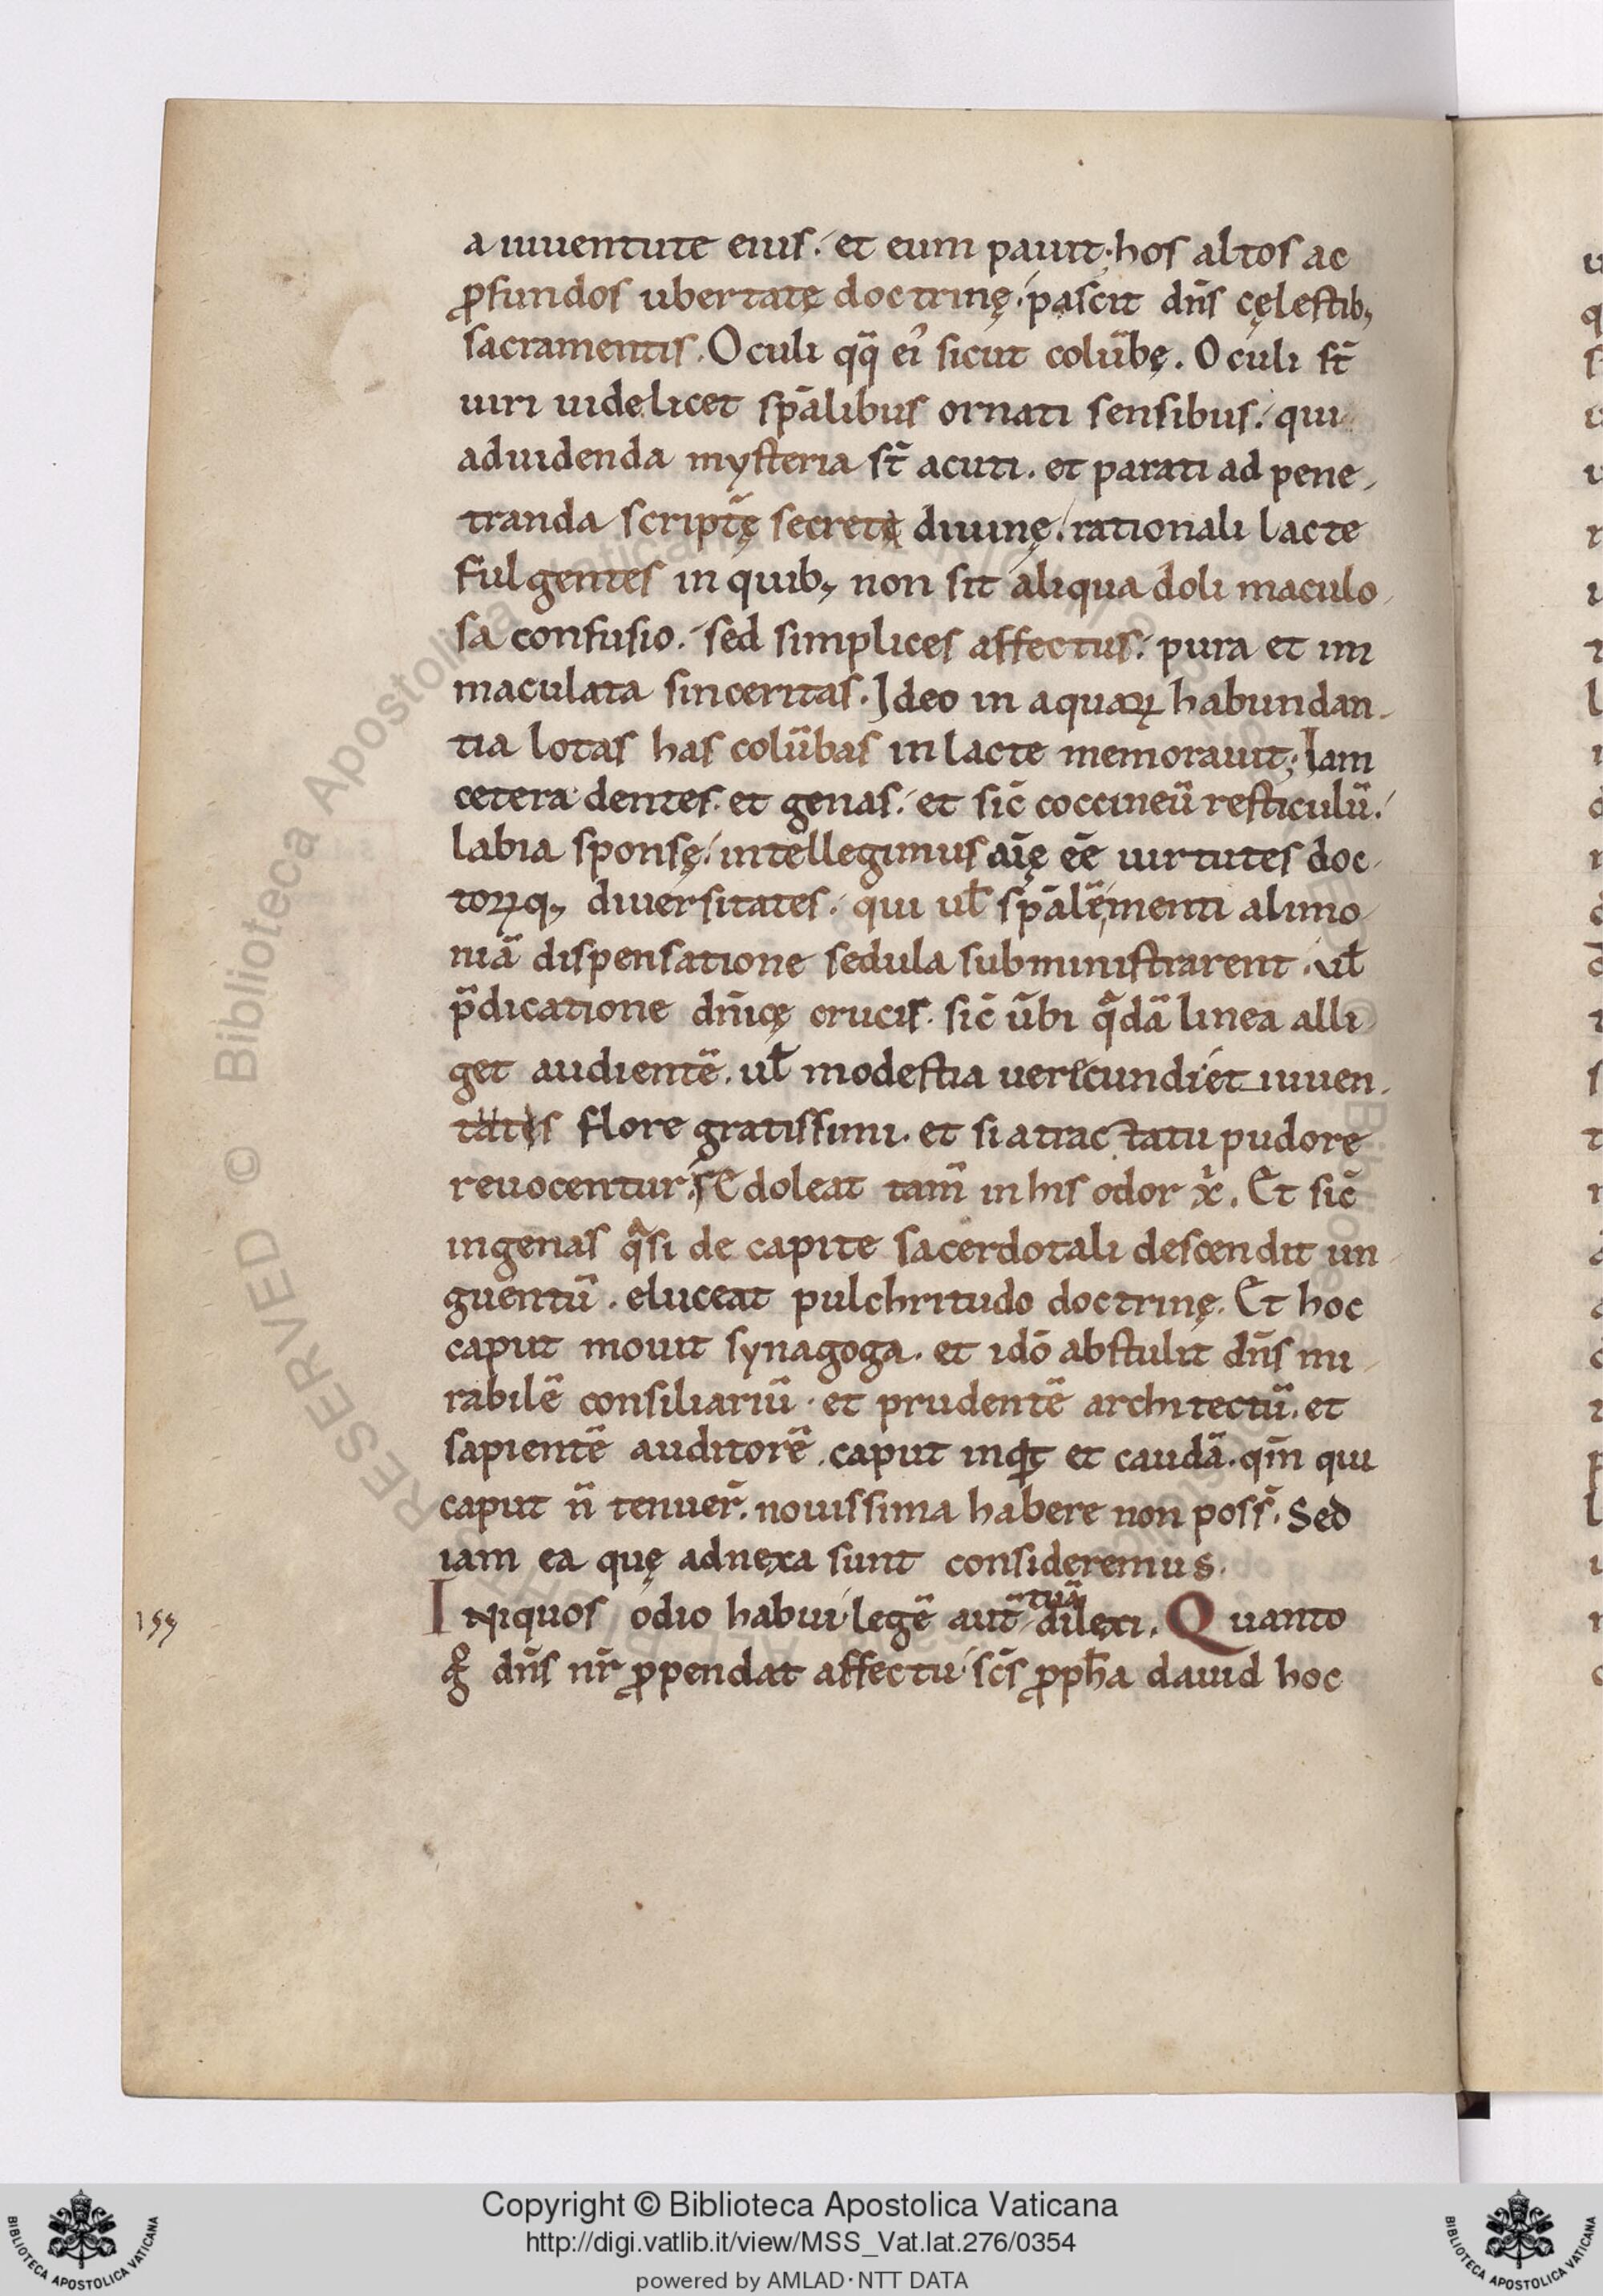 a iuuentute eius. et eum pauit; hos altos ac
ꝓfundos ubertatę doctrinę. pascit dn̄s cęlestib;
sacramentis. Oculi qq̄ ei᾽ sicut colūbę. Oculi st̄
uiri uidelicet sp̄alibus ornati sensibus. qui
aduidenda mysteria st̄ acuti. et parati ad pene
tranda scriptę̄ secretę diuinę. rationali lacte
fulgentes in quib; non sit aliqua doli maculo
sa confusio. sed simplices affectus. pura et im
maculata sinceritas. Ideo in aquaꝝ habundan
tia lotas has colūbas in lacte memorauit; Iam
cetera dentes. et genas. et sic̄ coccineū resticulū.
labia sponsę. intellegimus aīę eē uirtutes doc
toꝝq; diuersitates. qui ul̄ sp̄alē menti alimo
niā dispensatione sedula subministrarent. ul̄
p̄dicatione dn̄icę crucis. sic̄ ūbi qᵃdā linea alli
get audientē. ul̄ modestia uerecundi et iuuen
tatis flore gratissimi. et si atractatu pudore
reuocentur. se doleat tam̄ in his odor xᵢ̄. Et sic̄
ingenas qᵃsi de capite sacerdotali descendit un
guentū. eluceat pulchritudo doctrinę. Et hoc
caput mouit synagoga. et idō abstulit dn̄s mi
rabilē consiliariū. et prudentē architectū. et
sapientē auditorē. caput inqͥt et caudā. qm̄ qui
caput n̄ tenuer̄. nouissima habere non poss̄. Sed
iam ea quę adnexa sunt consideremus.
tuā
159 Iniquos odio habui legē aut̄ dilexi. Quanto
gᵒ dn̄s nr̄ ꝓpendat affectu sc̄s ꝓph̄a dauid hoc
Copyright © Biblioteca Apostolica Vaticana
http://digi.vatlib.it/view/MSS_Vat.lat.276/0354
powered by AMLAD·NTT DATA
BIBLIOTECA APOSTOLICA VATICANA
BIBLIOTECA APOSTOLICA VATICANA